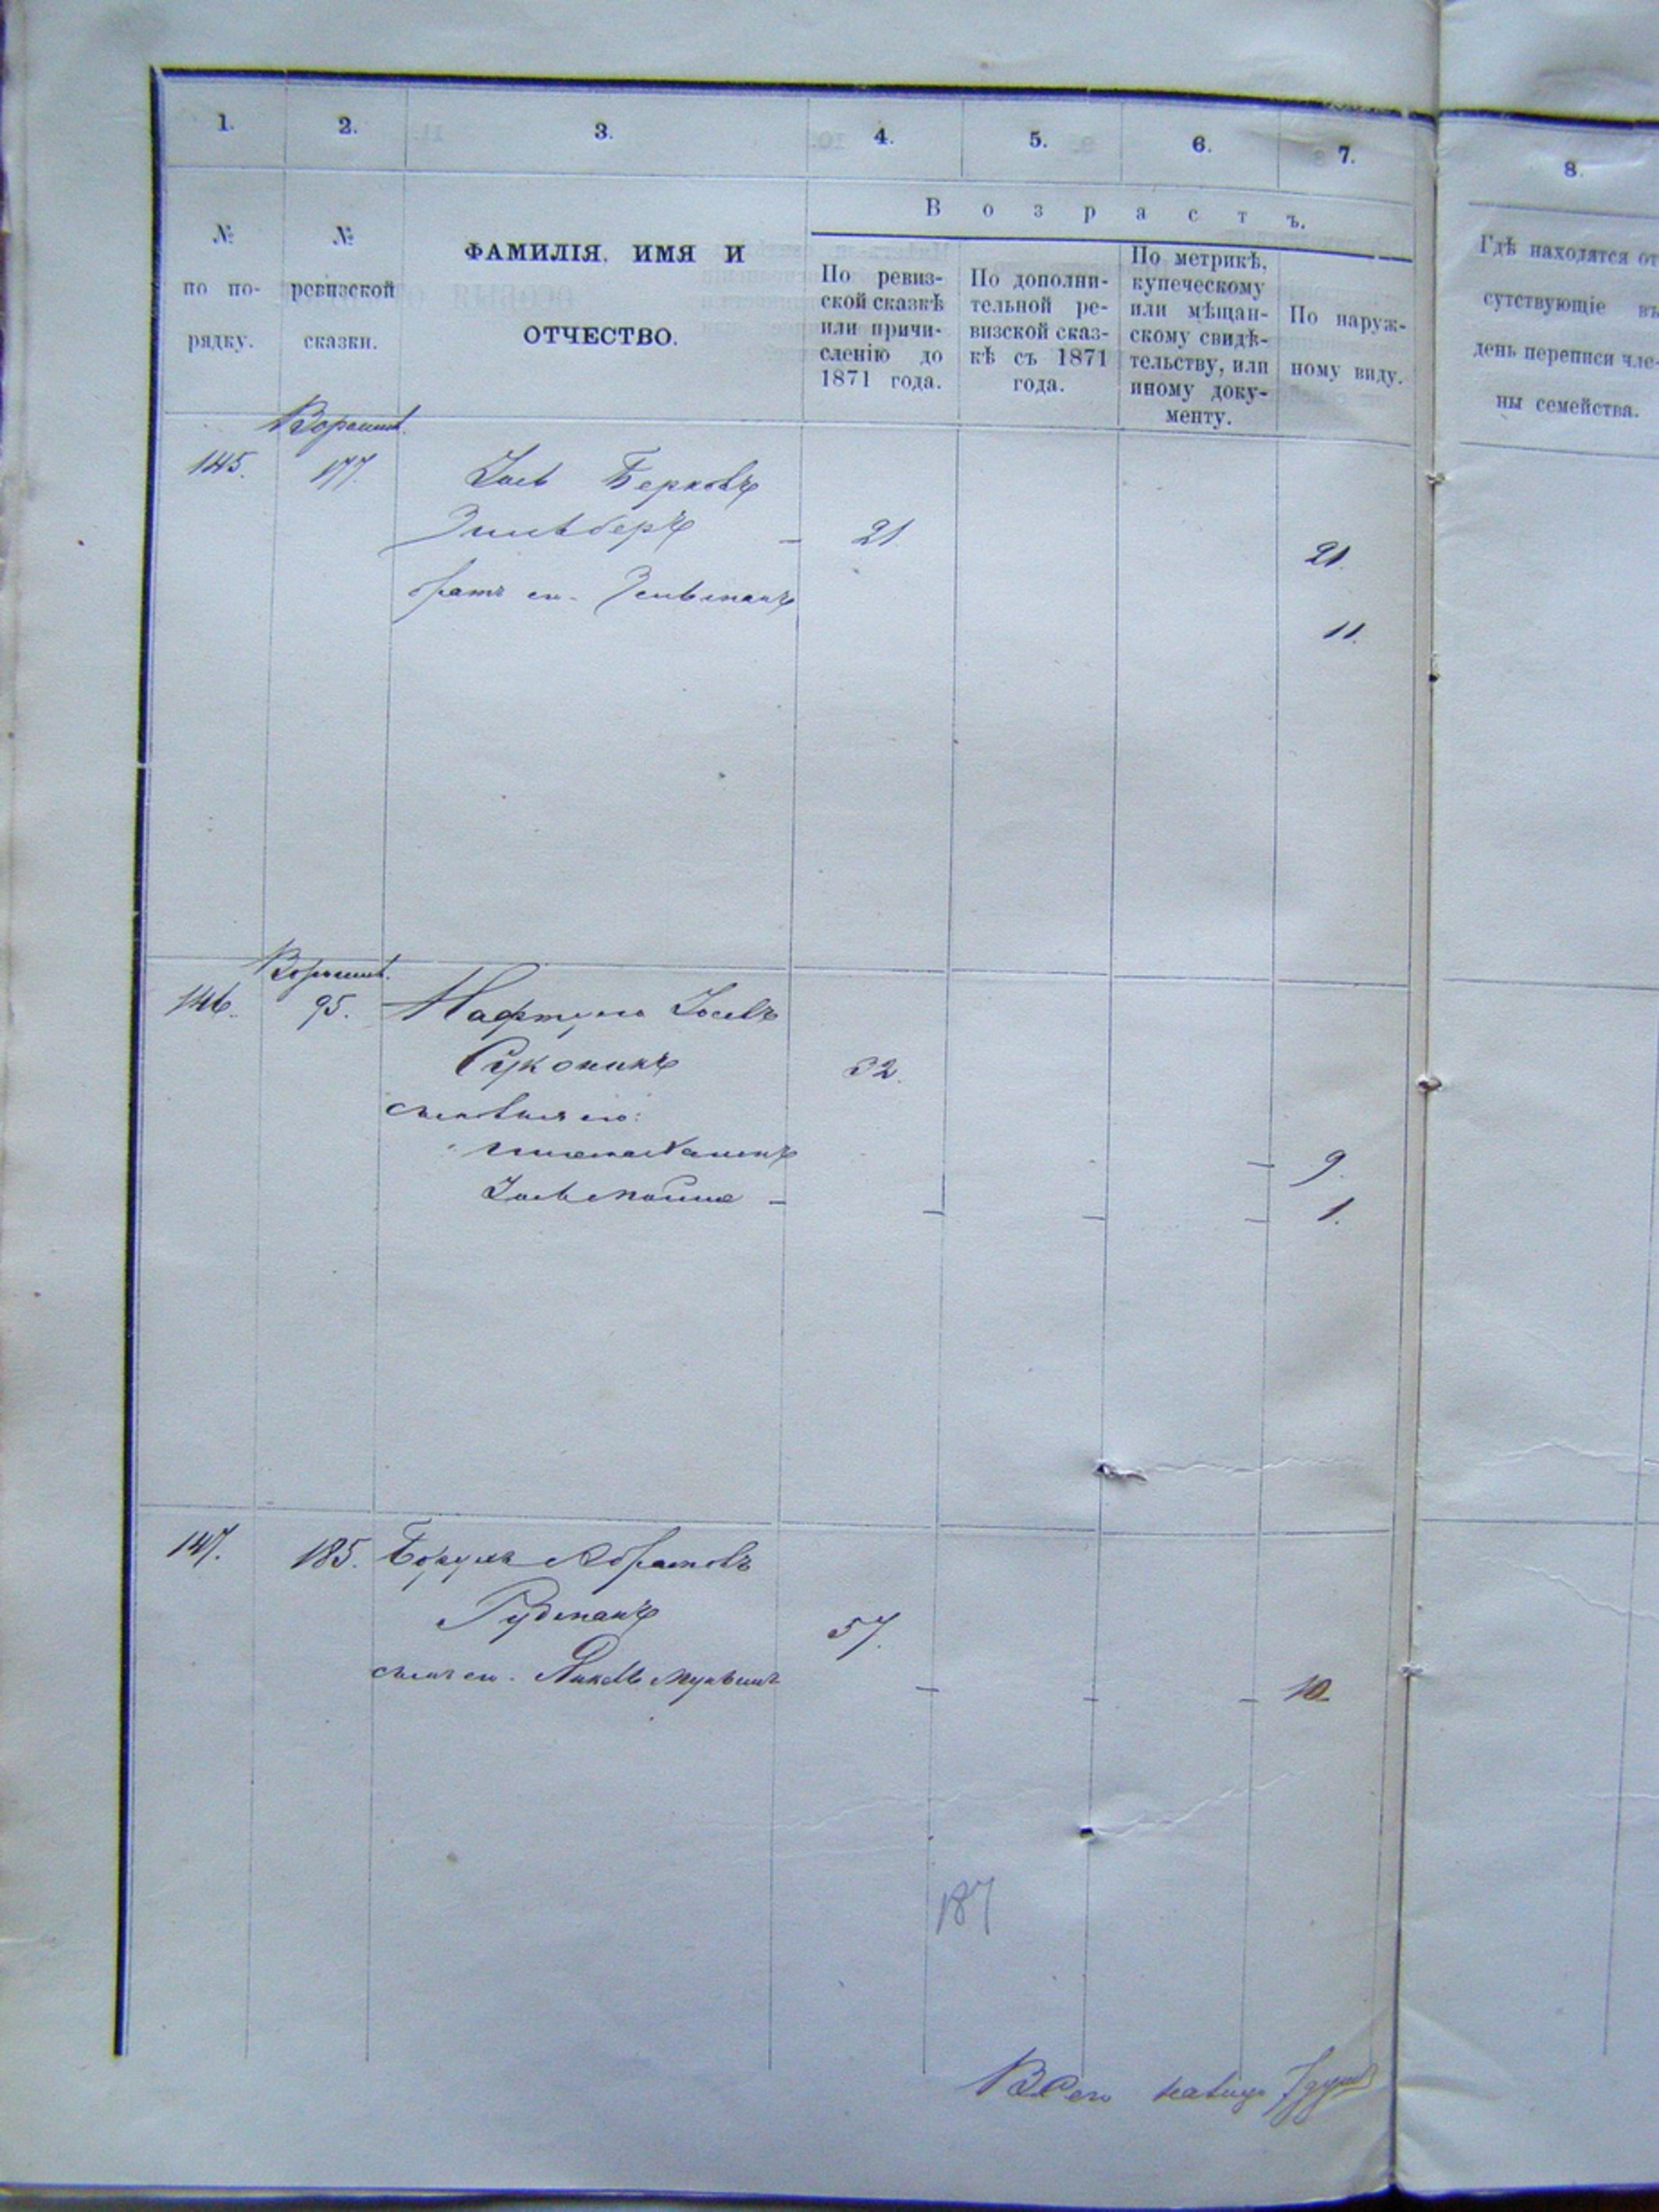 1. 2. 3. 4. 5. 6. 7. 8.
В о з р а с т ъ.
№ по по-рядку.
№ ревизской сказки.
ФАМИЛІЯ, ИМЯ И
ОТЧЕСТВО.
По ревиз-
ской сказкѣ
или причи-
сленію до
1871 года.
По дополни-
тельной ре-
визской сказ-
кѣ съ 1871
года.
По метрикѣ,
купеческому
или мѣщан-
скому свидѣ-
тельству, или
иному доку-
менту.
По наруж-
ному виду.
Гдѣ находятся от
сутствующіе въ
день переписи чле-
ны семейства.
145. 177. Іось Берковъ
Зильберъ 21 21.
братъ его Зельманъ 11.
146. 95. Нафтула Іосевъ
Суконикъ 32.
сыновья его:
9.
Іось 1.
147. 185. Борухъ Абрамовъ
Гудманъ 57.
сынъ его Янкель 10
187
Всего на лицо 7 душъ